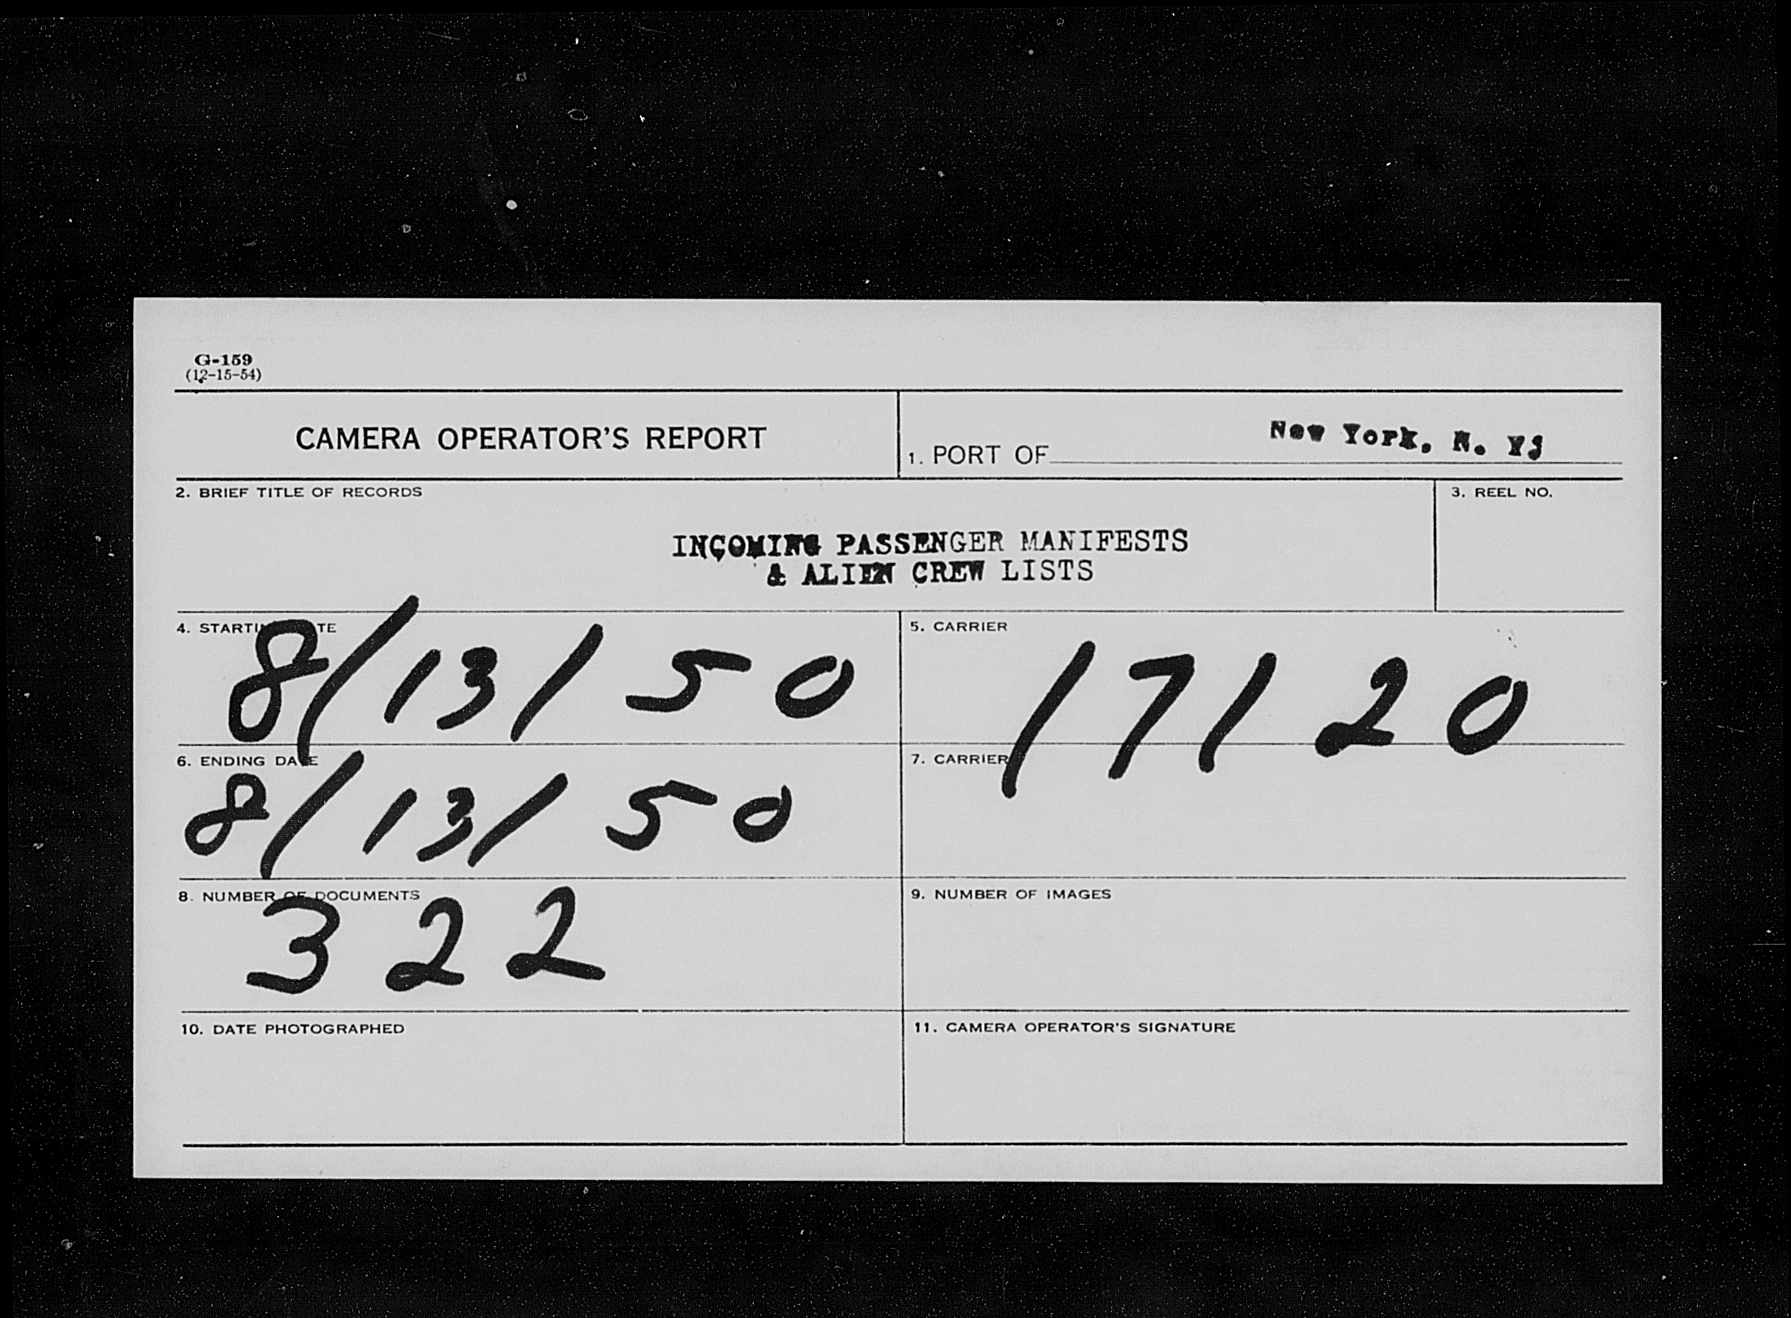 G-159
(12-15-54)
CAMERA OPERATOR'S REPORT
1. PORT OF New York, N. Y.
2. BRIEF TITLE OF RECORDS
3. REEL NO.
INCOMING PASSENGER MANIFESTS
& ALIEN CREW LISTS
4. STARTING DATE
8/13/50
5. CARRIER
17120
6. ENDING DATE
8/13/50
7. CARRIER
8. NUMBER OF DOCUMENTS
322
9. NUMBER OF IMAGES
10. DATE PHOTOGRAPHED
11. CAMERA OPERATOR'S SIGNATURE